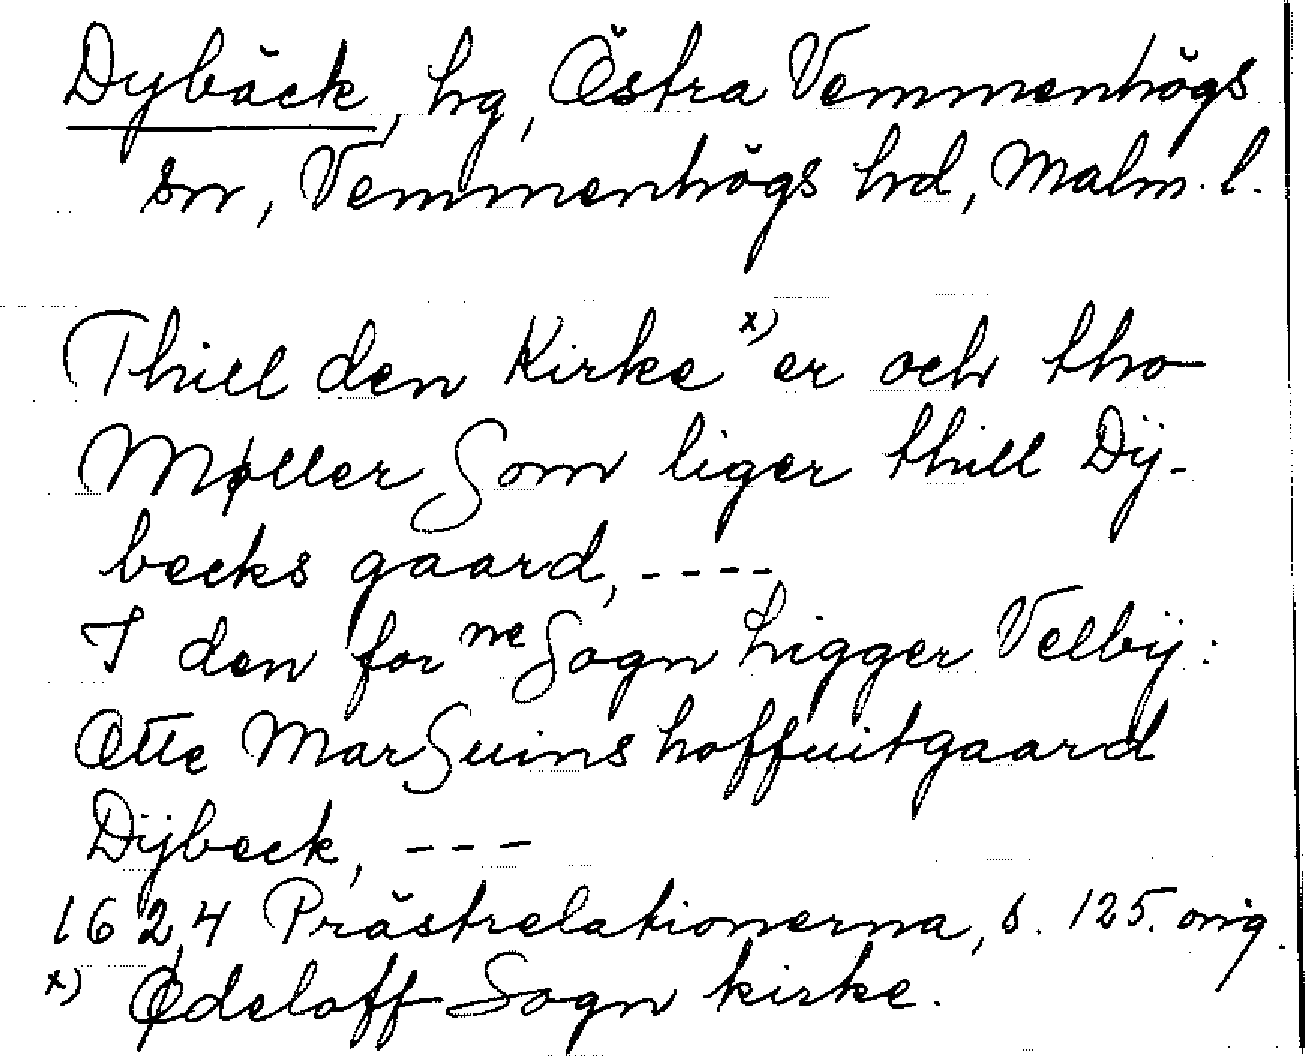 Dybäck, hg, Östra Vemmenhögs
sn, Vemmenhögs hd, Malm. l.
Thill den Kirke x) er och tho
Møller Som liger thill Dÿ-
becks gaard, ----
I den for ne Sogn higger Velbÿ:
Otte MarSuins hoffuitgaard
Dÿbeck, ---
1624 Prästrelationerna, s. 125. orig.
x) Ødeloff Sogn kirke.